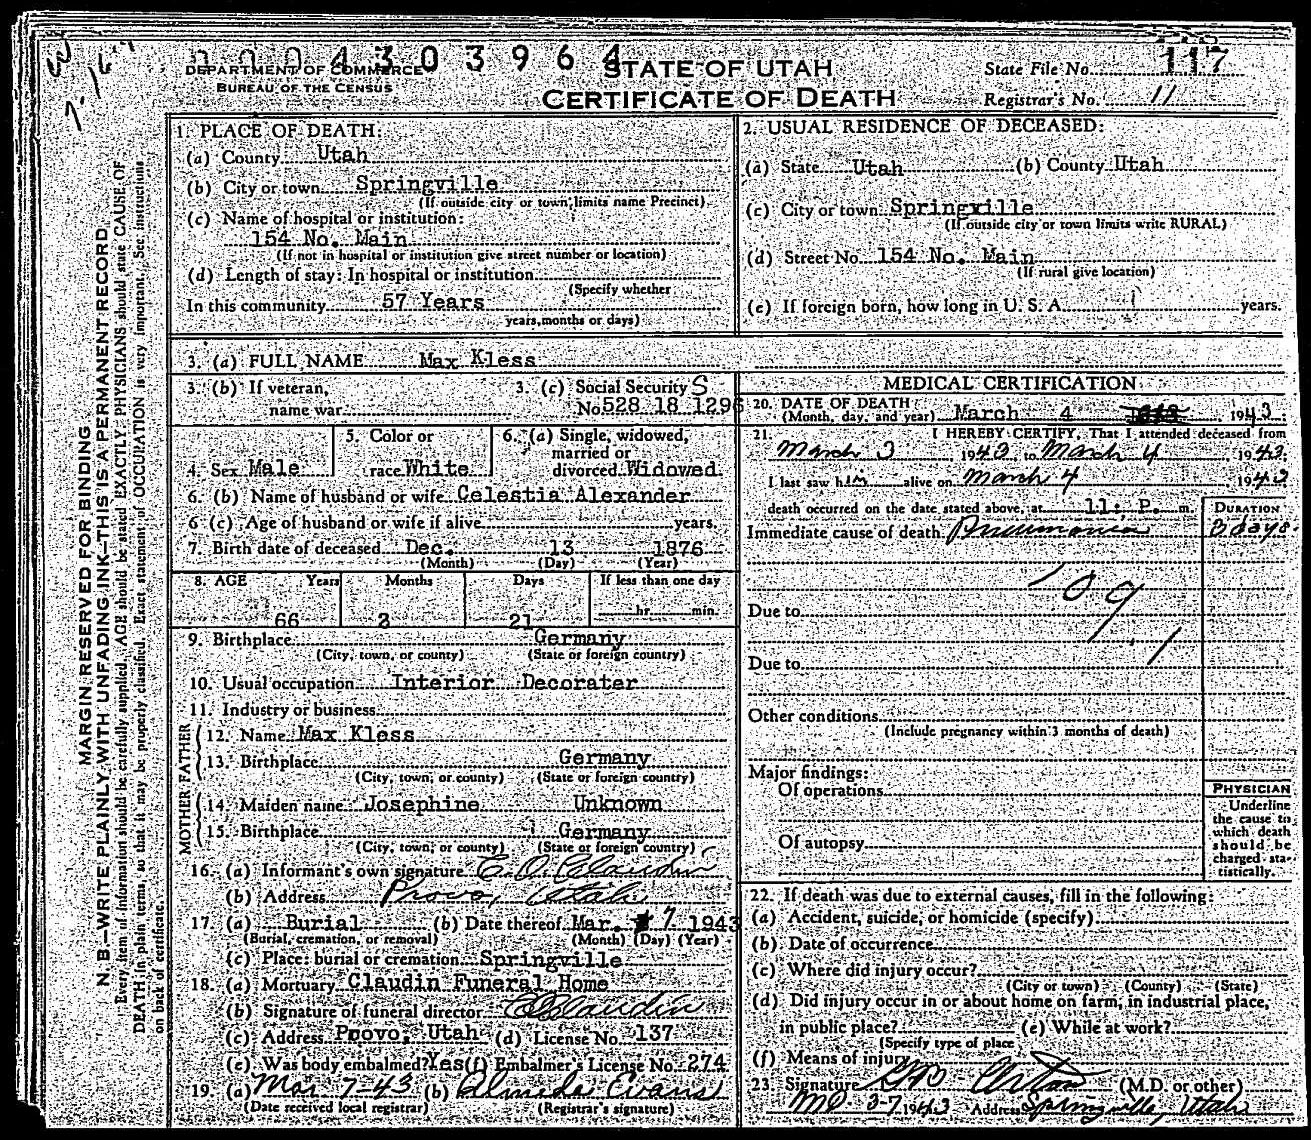 0004303964
DEPARTMENT OF COMMERCE
BUREAU OF THE CENSUS
STATE OF UTAH
CERTIFICATE OF DEATH
State File No. 117
Registrar's No. 11
MARGIN RESERVED FOR BINDING
N. B.—WRITE PLAINLY WITH UNFADING INK—THIS IS A PERMANENT RECORD
Every item of information should be carefully supplied. AGE should be stated EXACTLY. PHYSICIANS should state CAUSE OF
DEATH in plain terms, so that it may be properly classified. Exact statement of OCCUPATION is very important. See instructions
on back of certificate.
1. PLACE OF DEATH:
(a) County Utah
(b) City or town Springville
(If outside city or town limits name Precinct)
(c) Name of hospital or institution:
154 No. Main
(If not in hospital or institution give street number or location)
(d) Length of stay: In hospital or institution
(Specify whether
In this community 57 Years
years, months or days)
2. USUAL RESIDENCE OF DECEASED:
(a) State Utah (b) County Utah
(c) City or town Springville
(If outside city or town limits write RURAL)
(d) Street No. 154 No. Main
(If rural give location)
(e) If foreign born, how long in U. S. A. years.
3. (a) FULL NAME Max Kless
3. (b) If veteran,
name war
3. (c) Social Security S
No. 528 18 1296
4. Sex Male
5. Color or
race White
6. (a) Single, widowed,
married or
divorced Widowed
6. (b) Name of husband or wife Celestia Alexander
6 (c) Age of husband or wife if alive years.
7. Birth date of deceased Dec. 13 1876
(Month) (Day) (Year)
8. AGE Years Months Days If less than one day
66 3 21 hr. min.
9. Birthplace Germany
(City, town, or county) (State or foreign country)
10. Usual occupation Interior Decorater
11. Industry or business
FATHER
12. Name Max Kless
13. Birthplace Germany
(City, town, or county) (State or foreign country)
MOTHER
14. Maiden name Josephine Unknown
15. Birthplace Germany
(City, town, or county) (State or foreign country)
16. (a) Informant's own signature E. D. Claudin
(b) Address Provo, Utah
17. (a) Burial (b) Date thereof Mar. 7 1943
(Burial, cremation, or removal) (Month) (Day) (Year)
(c) Place: burial or cremation Springville
18. (a) Mortuary Claudin Funeral Home
(b) Signature of funeral director E D Claudin
(c) Address Provo, Utah (d) License No. 137
(e) Was body embalmed? Yes (f) Embalmer's License No. 274
19. (a) Mar 7-43 (b) Almeda Evans
(Date received local registrar) (Registrar's signature)
MEDICAL CERTIFICATION
20. DATE OF DEATH:
(Month, day, and year) March 4 1943
21. I HEREBY CERTIFY, That I attended deceased from
March 3, 1943, to March 4 1943.
I last saw him alive on March 4 1943
death occurred on the date stated above, at 11: P. m.
DURATION
Immediate cause of death Pneumonia 3 days
109
Due to
1
Due to
Other conditions
(Include pregnancy within 3 months of death)
Major findings:
Of operations
Of autopsy
PHYSICIAN
Underline
the cause to
which death
should be
charged sta-
tistically.
22. If death was due to external causes, fill in the following:
(a) Accident, suicide, or homicide (specify)
(b) Date of occurrence
(c) Where did injury occur?
(City or town) (County) (State)
(d) Did injury occur in or about home on farm, in industrial place,
in public place? (e) While at work?
(Specify type of place
(f) Means of injury
23. Signature (M.D. or other)
3-7 1943 Address Springville, Utah